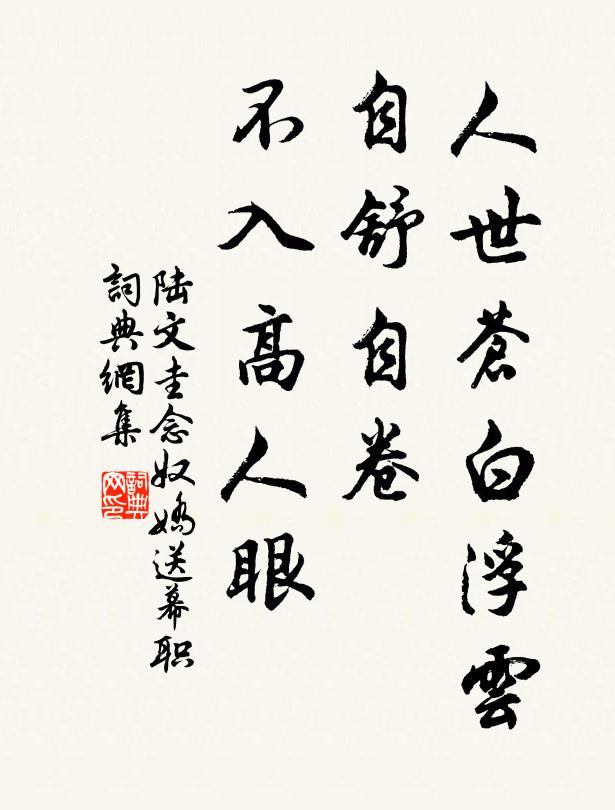 人世蒼白浮雲
自舒自卷
不入高人眼
陆文圭念奴嬌送幕职
詞典網集
詞典网印